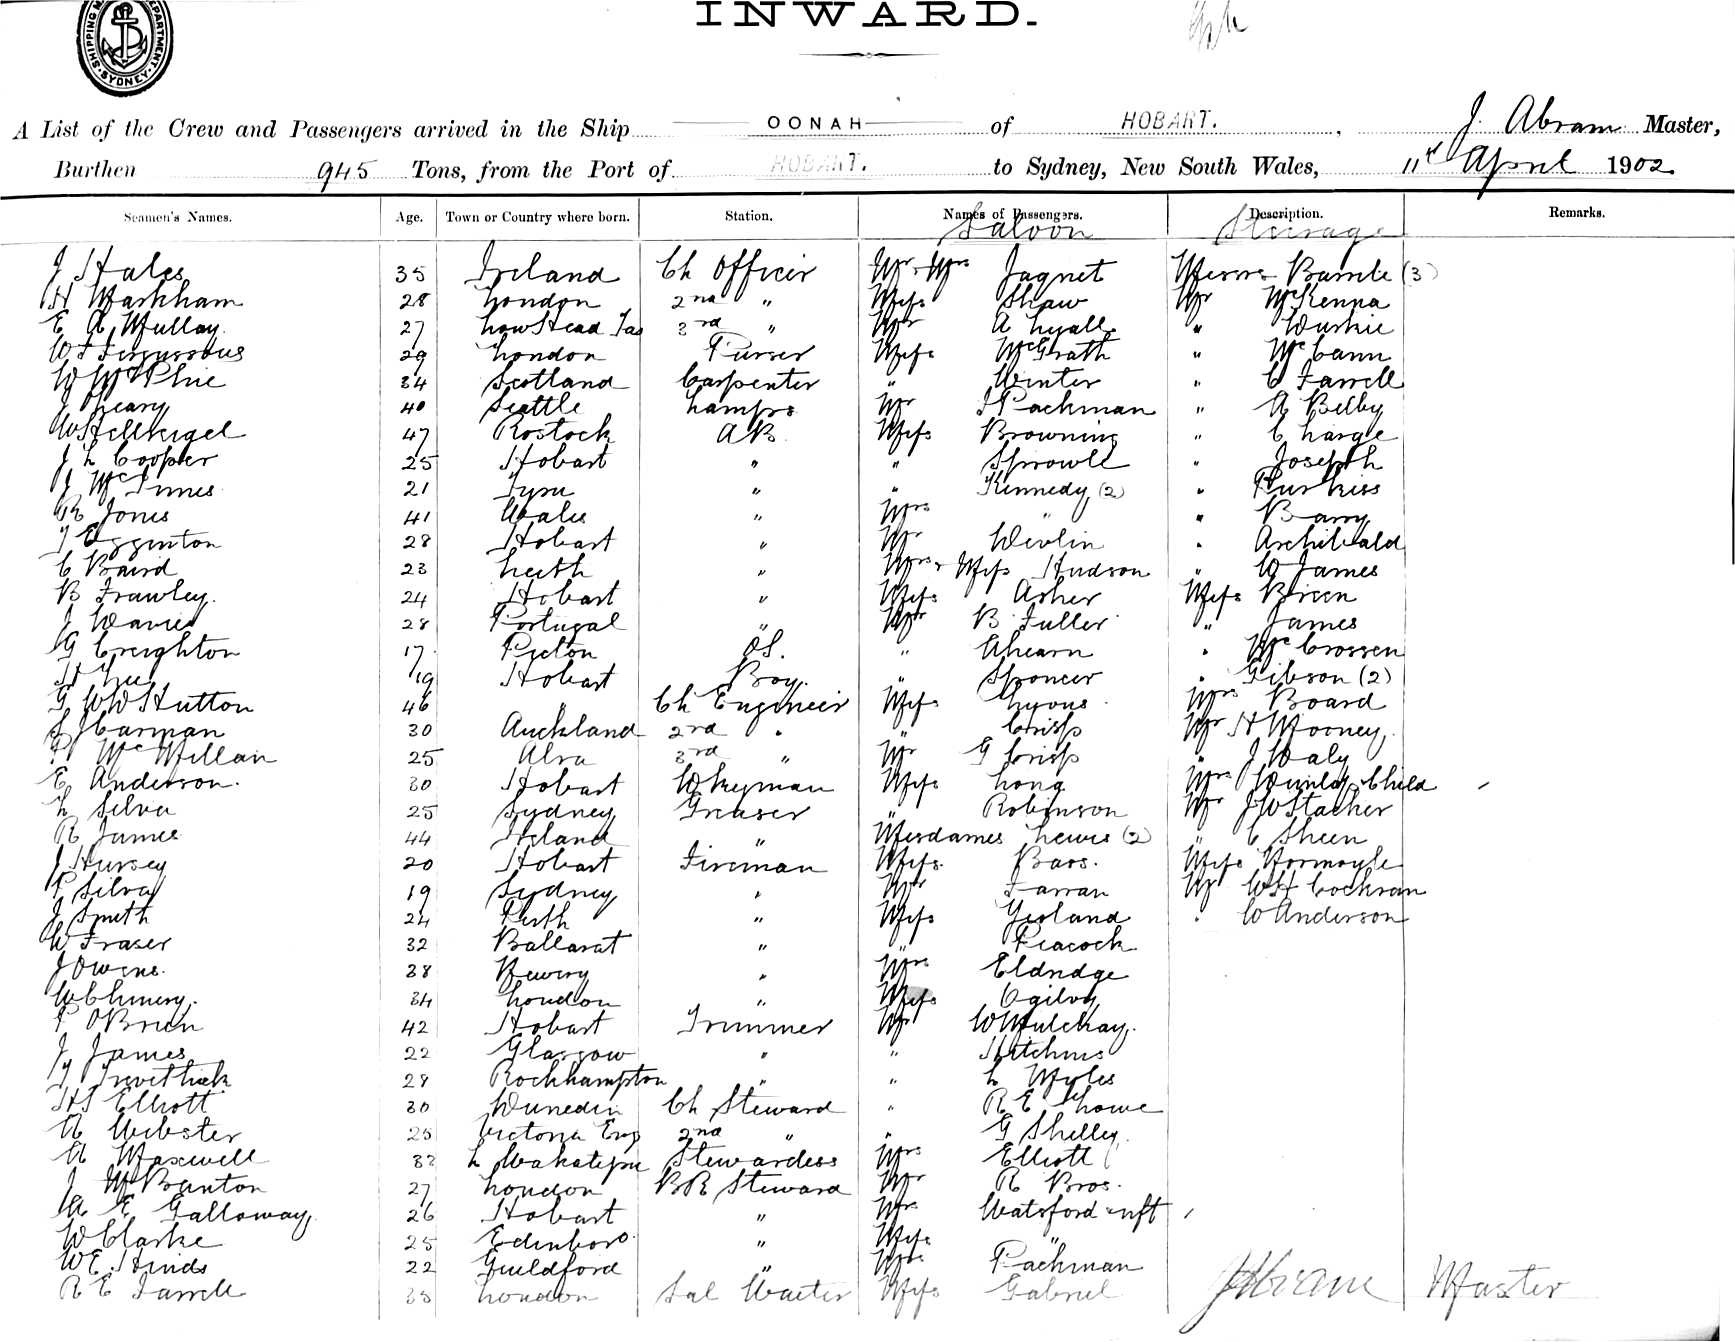 INWARD.
SHIPPING DEPARTMENT. SYDNEY
A List of the Crew and Passengers arrived in the Ship OONAH of HOBART. , J. Abram Master,
Burthen 945 Tons, from the Port of HOBART. to Sydney, New South Wales, 11th April 1902
Seamen's Names. Age. Town or Country where born. Station. Names of Passengers. Description. Remarks.
Saloon Steerage
J Hales 35 Ireland Ch Officer Mr & Mrs Jagnet Messrs (3)
H Markham 28 London 2nd " Miss Shaw Mr McKenna
E A Mullay. 27 Low Head Tas 3rd " Mr A Lyall "
29 London Purser Miss McGrath " McCann
W McPhie 34 Scotland Carpenter " Winter " C Farrell
J Leary 40 Seattle Lamps Mr Packman " A Bilby
47 Rostock AB. Miss Browning " C Large
J L Cooper 25 Hobart " " Sprowll " Joseph
J McInnes 21 " " Kennedy (2) "
R Jones 41 Wales " Mrs " " Barry
T Egginton 28 Hobart " Mr Devlin " Archibald
C Baird 23 Leith " Mrs & Miss Hudson " W James
B Frawley. 24 Hobart " Miss Asher Miss Breen
J Davies 28 Portugal " Mr B Fuller " James
G Creighton 17 Picton OS. " Ahearn " McCrossen
19 Hobart Boy. " Spencer " Gibson (2)
G W Hutton 46 " Ch Engineer Miss Lyons Mrs Board
J Carman 30 Auckland 2nd " " Crisp Mr H Mooney
McMillan 25 Alva 3rd " Mr G Crisp " J Daly
E Anderson. 30 Hobart Dkeyman Miss Long Mrs & Child
L Silva 25 Sydney Greaser " Robinson Mr J W Stacker
R James 44 Ireland " Mesdames Lewis (2) " C Sheen
J Hursey 20 Hobart Fireman Miss Bars. Miss Normoyle
P Silva 19 Sydney " Mr Farran Mr W H Cochran
J Smith 24 Perth " Miss Yeoland " W Anderson
W Fraser 32 Ballarat " " Peacock
J Owens. 38 " Mrs Eldridge
34 London " Miss Ogilvy
P O'Brien 42 Hobart Trimmer Mr W Mulchay.
J James 22 Glasgow " " Hitchins
J Trevethick 28 Rockhampton " " L Myles
H J Elliott 30 Dunedin Ch Steward " R E
A Webster 25 Victoria 2nd " " G Shelley.
A Maxwell 32 L Wakatipu Stewardess Mrs Elliott
J McBanton 27 London BR Steward Mr R Bros.
A E Galloway 26 Hobart " Mr Watsford
W Clarke 25 Edinboro " Miss "
W E Hinds 22 Guildford " Mr Packman
R E Farrell 35 London Sal Waiter Miss Gabriel J Abram Master